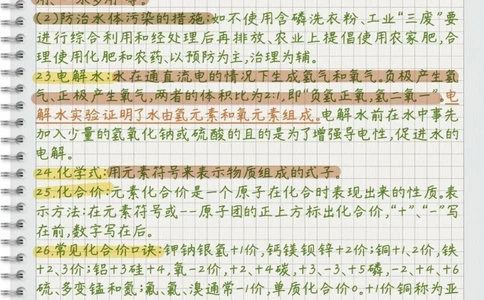 (2)防治水体污染的措施:如不使用含磷洗衣粉、工业“三废”要
进行综合利用和经处理后再排放、农业上提倡使用农家肥,合
理使用化肥和农药、以预防为主,治理为辅。
23.电解水:水在通直流电的情况下生成氢气和氧气。负极产生氢
气、正极产生氧气,两者的体积比为2:1,即“负氢正氧,氢二氧一”。电
解水实验证明了水由氢元素和氧元素组成。电解水前在水中事先
加入少量的氢氧化钠或硫酸的且的是为了增强导电性,促进水的
电解。
24.化学式:用元素符号来表示物质组成的式子。
25.化合价:元素化合价是一个原子在化合时表现出来的性质。表
示方法:在元素符号或--原子团的正上方标出化合价,“+”、“-”写
在前,数字写在后。
26.常见化合价口诀:钾钠银氢+1价,钙镁钡锌+2价;铜+1、2价,铁
+2、3价;铝+3硅+4,氧-2价,+2、+4碳,+3、-3、+5磷,-2、+4、+6
硫、多变锰和氮;氟、氯、溴通常-1价,单质化合价0。+1价铜称为亚